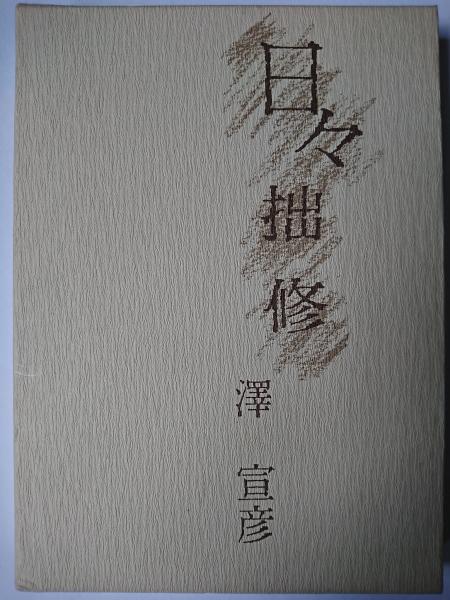 日々拙修
澤 宣彦